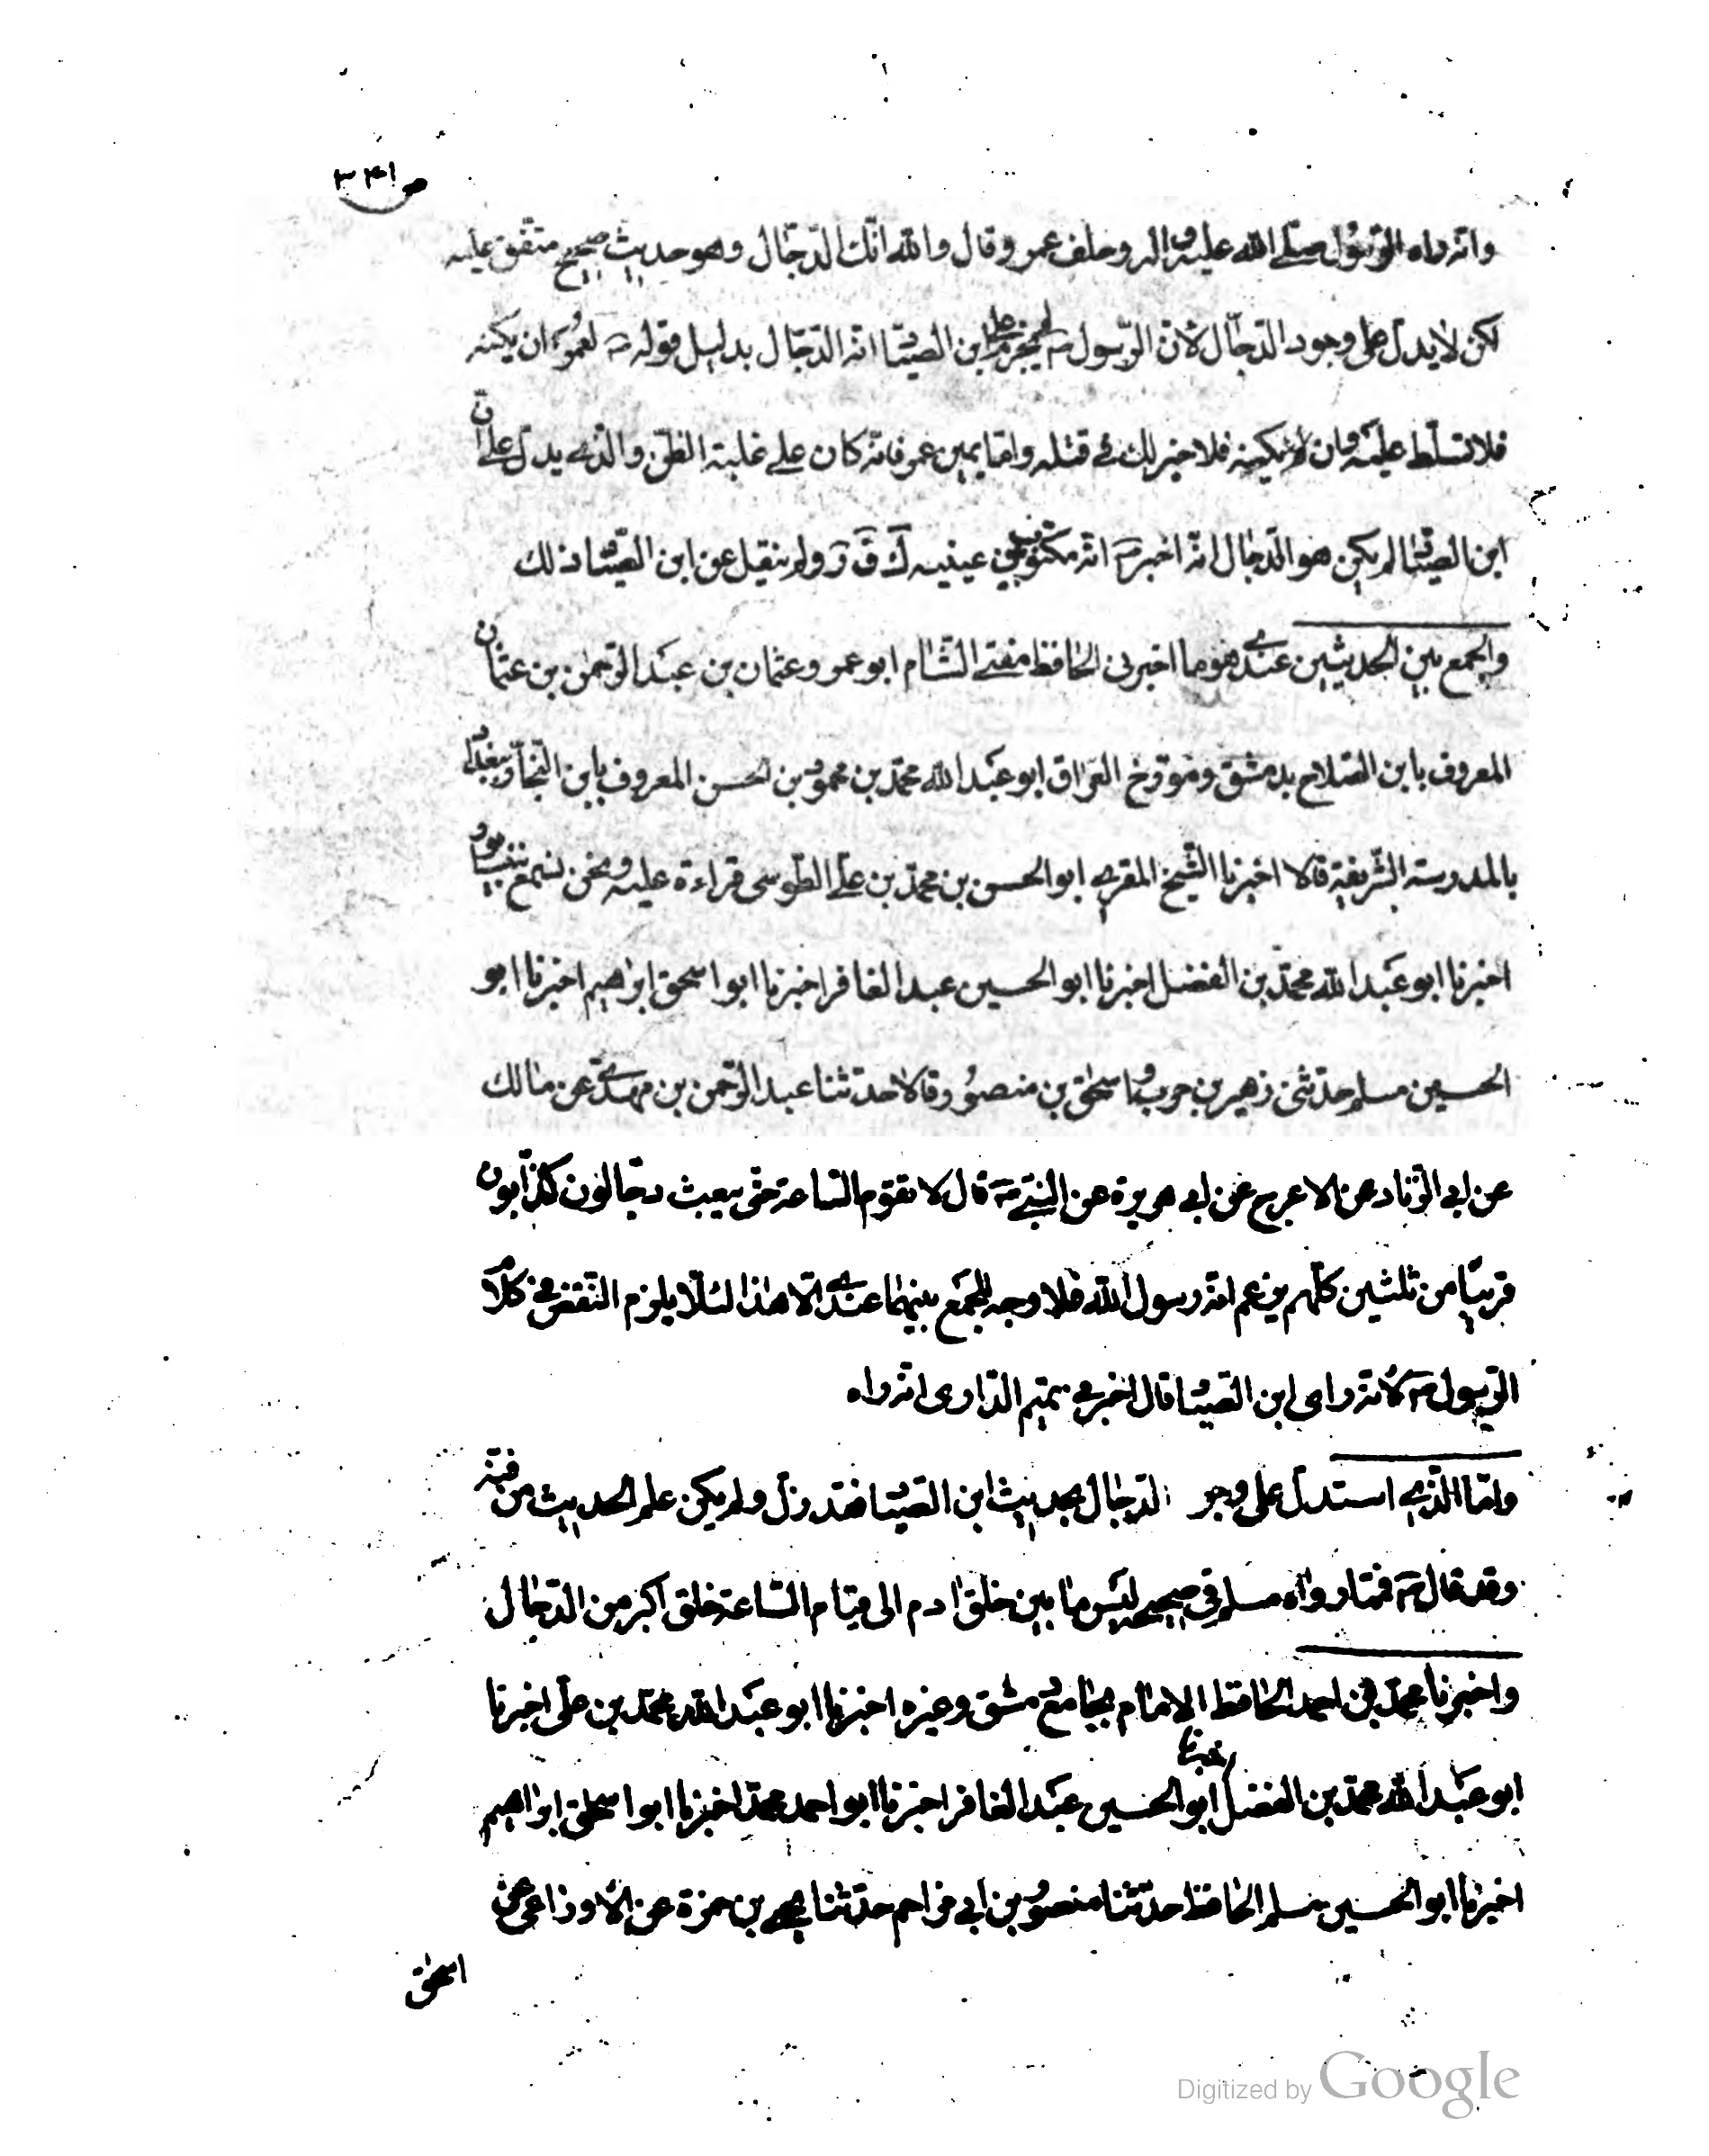 ص ٣٤١
وانه راه الرسول صلى الله عليه واله وحلف عمر وقال والله انك الدجال وهو حديث صحيح متفق عليه
لكن لا يدل على وجود الدجال لان الرسول ص لم يجزم على ابن الصياد انه الدجال بدليل قوله ص لعمر ان يكنه
فلا تسلط عليه وان لم يكنه فلا خير لك في قتله واما يمين عمر فانه كان على غلبة الظن والذي يدل على ان
ابن الصياد لم يكن هو الدجال انه اخبر ص انه مكتوب بين عينيه ك ف ر ولم ينقل عن ابن الصياد ذلك
والجمع بين الحديثين عندي هو ما اخبرني الحافظ مفتي الشام ابو عمرو عثمان بن عبد الرحمن بن عثمان
المعروف بابن الصلاح بدمشق ومورخ العراق ابو عبد الله محمد بن محمود بن الحسن المعروف بابن النجار ببغداد
بالمدرسة الشريفة قالا اخبرنا الشيخ المقري ابو الحسن بن محمد بن علي الطوسي قراءة عليه ونحن نسمع بنيسابور
اخبرنا ابو عبد الله محمد بن الفضل اخبرنا ابو الحسين عبد الغافر اخبرنا ابو اسحق ابراهيم اخبرنا ابو
الحسين مسلم حدثني زهير بن حرب واسحق بن منصور قالا حدثنا عبد الرحمن بن مهدي عن مالك
عن ابي الزناد عن الاعرج عن ابي هريرة عن النبي ص قال لا تقوم الساعة حتى يبعث دجالون كذابون
قريبا من ثلثين كلهم يزعم انه رسول الله فلا وجه للجمع بينهما عندي الا هذا لئلا يلزم النقض في كلام
الرسول ص لانه راى ابن الصياد قال اخبرني تميم الداري انه راه
واما الذي استدل على وجو الدجال بحديث ابن الصياد فقد زل ولم يكن علم الحديث من فنه
وقد قال ص فيما رواه مسلم في صحيحه ليس ما بين خلق ادم الى قيام الساعة خلق اكبر من الدجال
واخبرنا محمد بن احمد الحافظ الامام بجامع دمشق وغيره اخبرنا ابو عبد الله محمد بن علي اخبرنا
ابو عبد الله محمد بن الفضل اخبرنا ابو الحسين عبد الغافر اخبرنا ابو احمد محمد اخبرنا ابو اسحق ابراهيم
اخبرنا ابو الحسين مسلم الحافظ حدثنا منصور بن ابي مزاحم حدثنا يحيى بن حمزة عن الاوزاعي عن
اسحق
Digitized by Google